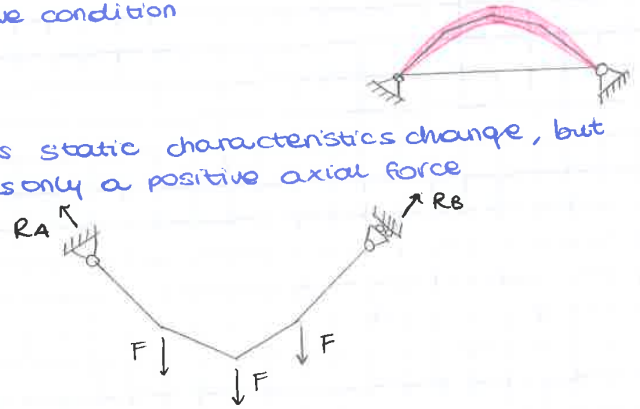 ve condition
s static characteristics change, but
s only a positive axial force
RA
RB
F
F
F